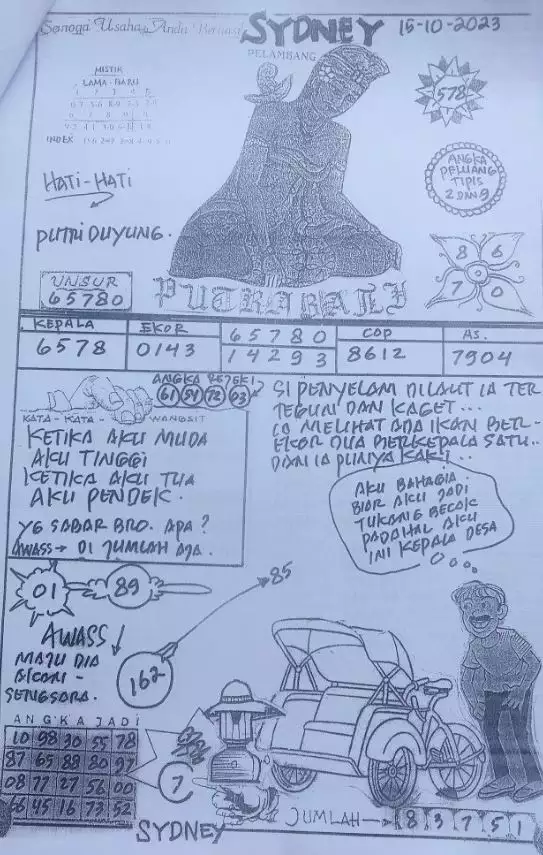 Semoga Usaha Anda Berhasil
SYDNEY
15-10-2023
PELAMBANG
MISTIK
LAMA - BARU
INDEX
578
HATI-HATI
ANGKA
PELUANG
TIPIS
2 DAN 9
PUTRI DUYUNG.
8 6
7 0
UNSUR
65780
PUTRA BALI
KEPALA
6578
EKOR
0143
65780
14293
COP
8612
AS.
7904
ANGKA REJEKI
61 54 72 03
KATA - KATA - WANGSIT
KETIKA AKU MUDA
AKU TINGGI
KETIKA AKU TUA
AKU PENDEK.
YG SABAR BRO. APA?
AWASS → DI JUMLAH AJA.
SI PENYELAM DILAUT IA TER
TEGUN DAN KAGET...
IA MELIHAT ADA IKAN BER-
EKOR DUA BERKEPALA SATU..
DAN IA PUNYA KAKI..
AKU BAHAGIA
BIAR AKU JADI
TUKANG BECAK
PADAHAL AKU
INI KEPALA DESA
01
89
85
AWASS
MATU DIA
DICARI -
SENGSARA.
162
ANGKA JADI
10 98 30 55 78
87 65 88 80 97
08 77 27 56 00
66 45 16 73 52
7
JUMLAH → 8 3 7 5 1
SYDNEY